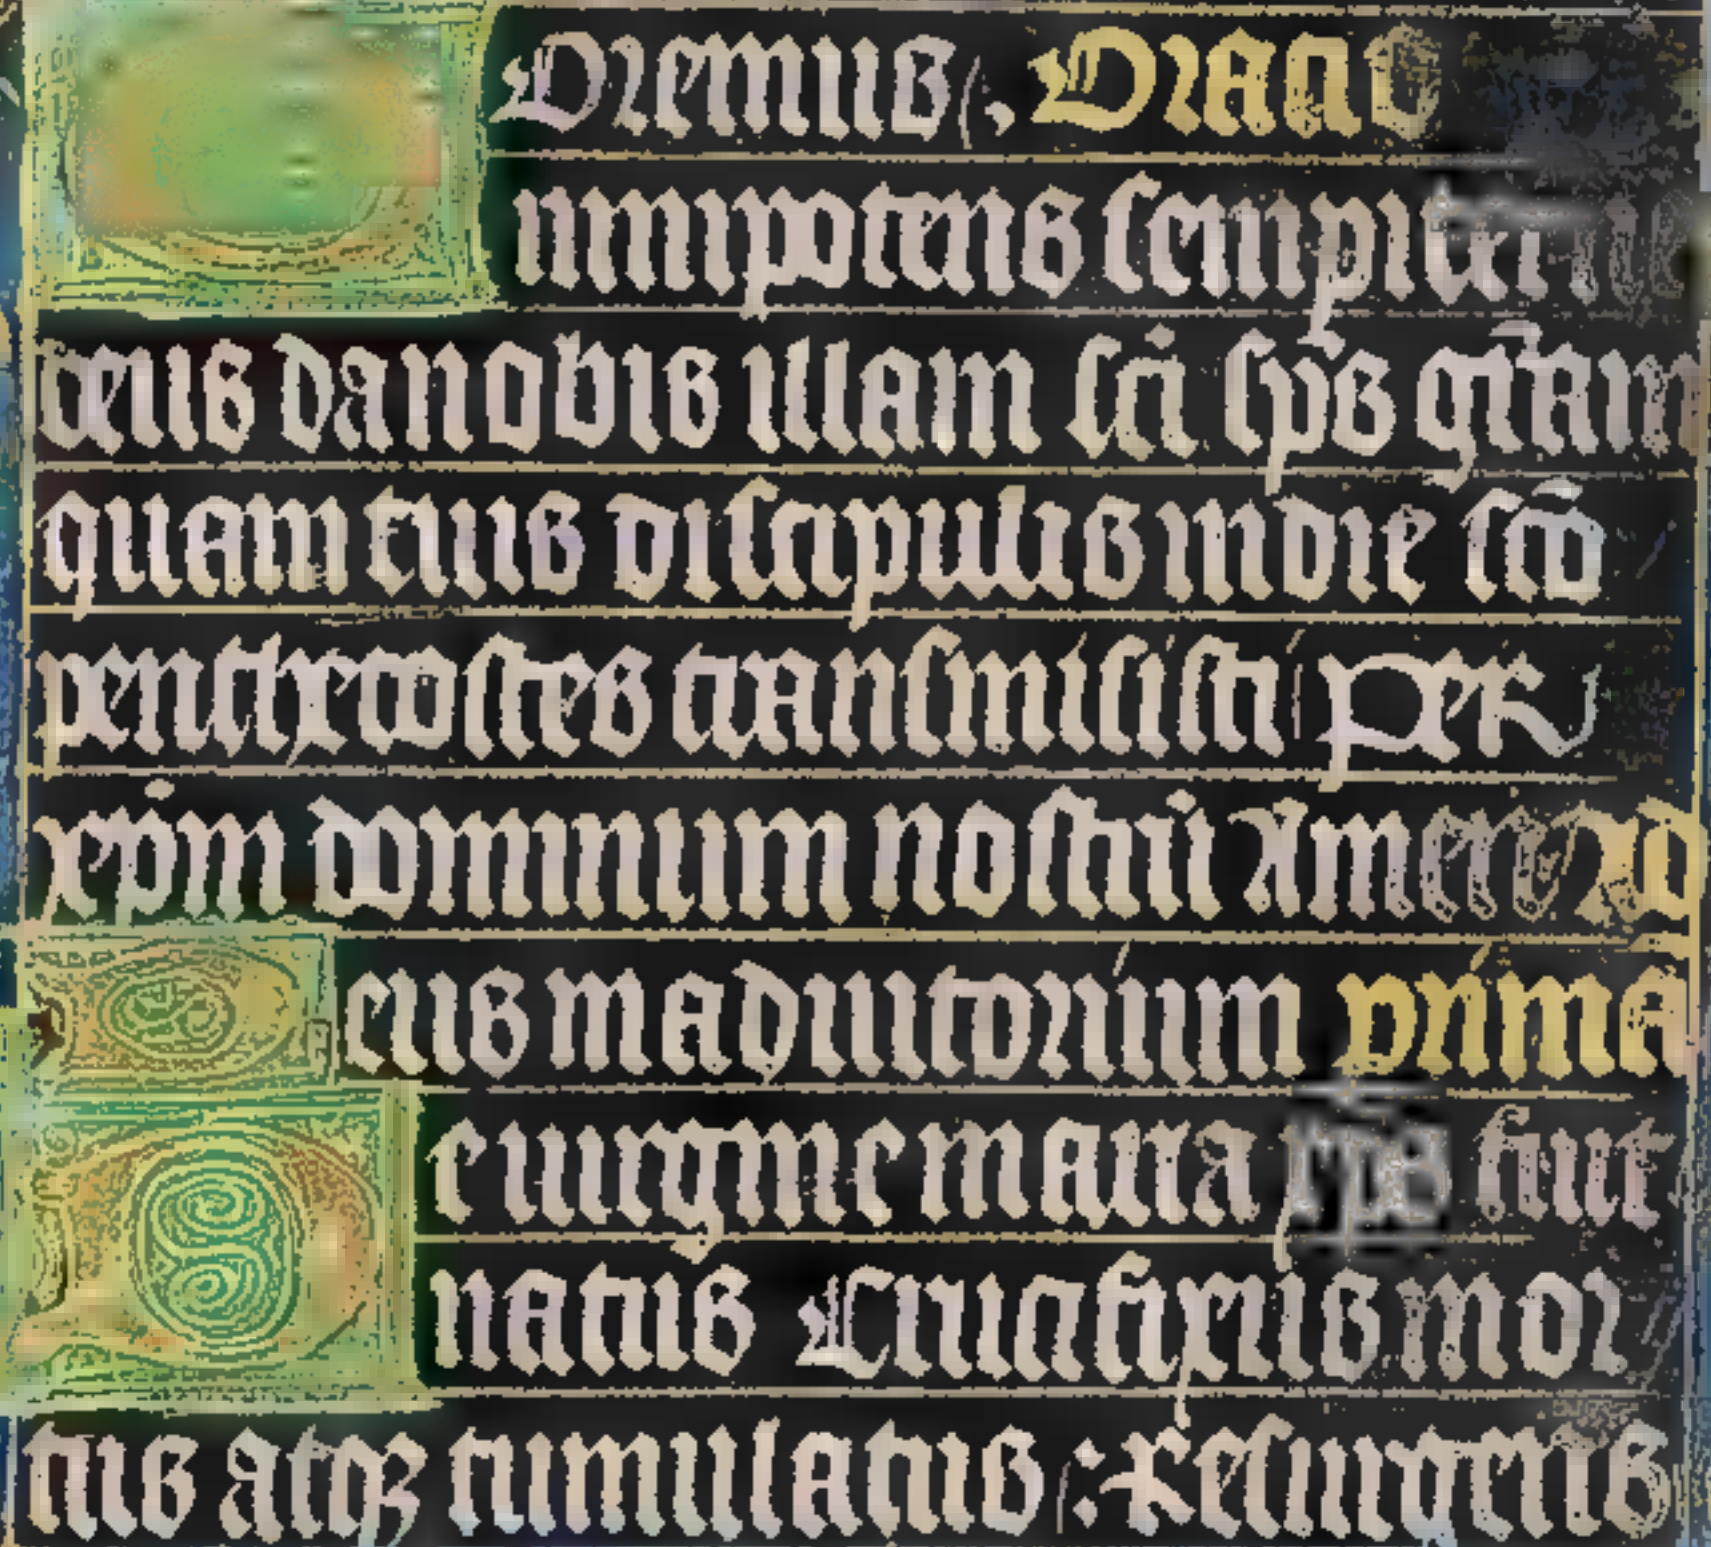 Oremus. Orac
mnipotens sempiterne
deus da nobis illam sci sps gram
quam tuis discipulis in die sco
penthecostes transmisisti per
xpm dominum nostrū Amen Ad
eus in adiutorium prima
e uirgine maria xps fuit
natus Crucifixus mor
tuus atqꝫ tumulatus : Resurgens